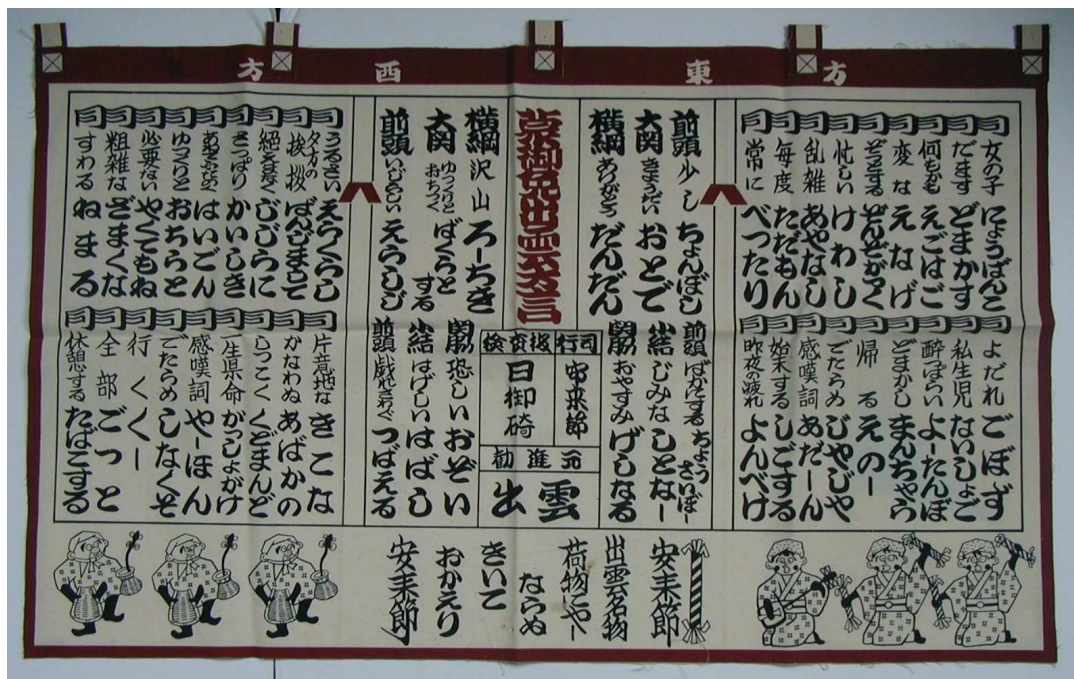 東方
西方
蒙御免出雲方言
同 女の子 にょうばんこ
同 だます どまかす
同 何もかも えごはご
同 変な えなげ
同 ぞっとする ぞんぞがつく
同 忙しい けわし
同 乱雑 あやなし
同 毎度 ただもん
同 常に べったり
同 よだれ ごぼず
同 私生児 ないしょご
同 酔ぱらい よーたんぼ
同 どまかし まんちゃら
同 帰る えのー
同 でたらめ じゃじゃ
同 感嘆詞 あだーん
同 始末する しごする
同 昨夜の疲れ よんべけ
前頭 少し ちょんぼし
大関 きょうだい おとで
横綱 ありがとう だんだん
前頭 ばかにする ちょうさいぼー
小結 じみな しとなー
関脇 おやすみ げしなる
行司 検査役
安来節
日御碕
勧進元
出雲
横綱 沢山 ろーちき
大関 ゆっくりとおちつく ばくらとする
前頭 いじらしい えらしじ
関脇 恐しい おぞい
小結 はげしい はばし
前頭 戯れさわぐ つばえる
同 うるさい えらくらし
同 夕方の挨拶 ばんじまして
同 絶えまなく じじらに
同 さっぱり かいしき
同 はいごん
同 ゆっくりと おちらと
同 必要ない やくてもね
同 粗雑な ざまくな
同 すわる ねまる
同 片意地な きこな
同 かなわぬ あばかの
同 しつこく くどまんど
同 一生県命 がっしょがけ
同 感嘆詞 やーほん
同 でたらめ しなくそ
同 行く くー
同 全部 ごっと
同 休憩する たばこする
安来節
出雲名物
荷物にゃー
ならぬ
きいて
おかえり
安来節